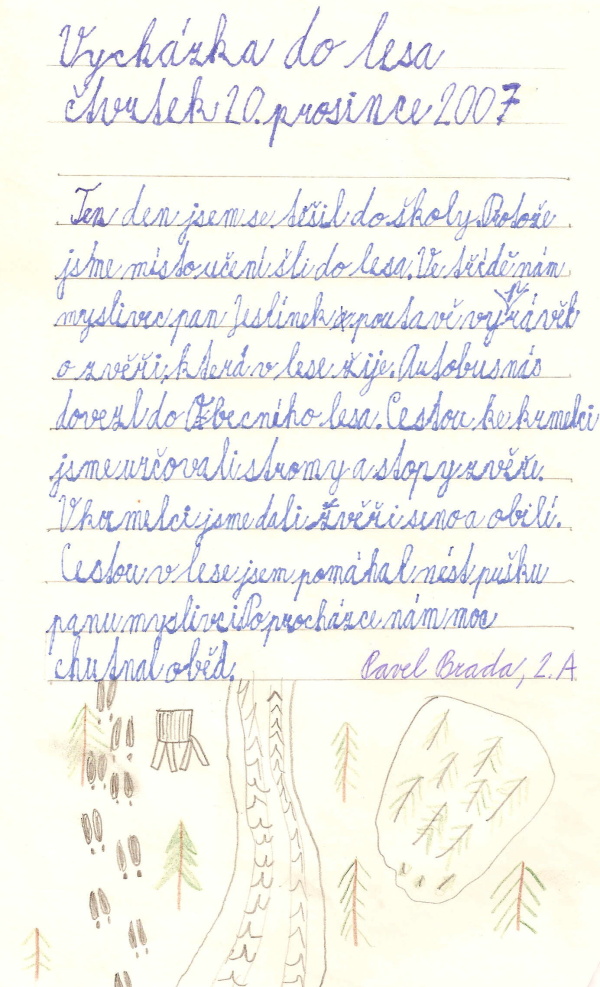 Vycházka do lesa
čtvrtek 20. prosince 2007
Ten den jsem se těšil do školy. Protože
jsme místo učení šli do lesa. Ve třídě nám
myslivec pan Jeslínek poutavě vyprávěl
o zvěři, která v lese žije. Autobus nás
dovezl do Obecního lesa. Cestou ke krmelci
jsme určovali stromy a stopy zvěře.
V krmelci jsme dali zvěři seno a obilí.
Cestou v lese jsem pomáhal nést pušku
panu myslivci. Po procházce nám moc
chutnal oběd.
Pavel Brada, 2. A